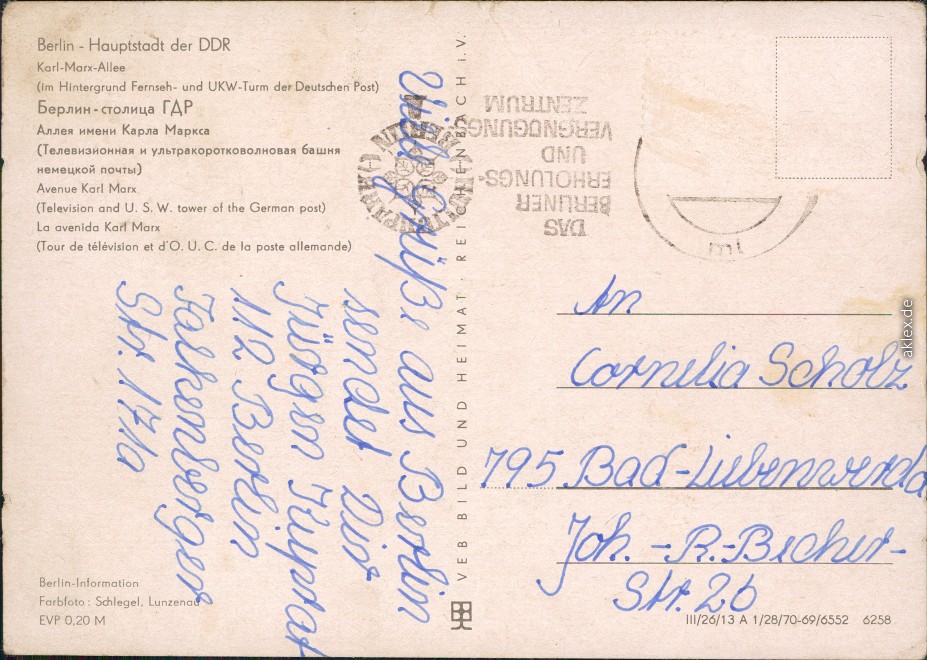 Berlin - Hauptstadt der DDR
Karl-Marx-Allee
(im Hintergrund Fernseh- und UKW-Turm der Deutschen Post)
Берлин - столица ГДР
Аллея имени Карла Маркса
(Телевизионная и ультракоротковолновая башня
немецкой почты)
Avenue Karl Marx
(Television and U. S. W. tower of the German post)
La avenida Karl Marx
(Tour de télévision et d'O. U. C. de la poste allemande)
Viele Grüße aus Berlin
sendet Dir
Jürgen
112 Berlin
Falkenberger
Str. 171a
Berlin-Information
Farbfoto: Schlegel, Lunzenau
EVP 0,20 M
VEB BILD UND HEIMAT · REICHENBACH i. V.
DAS
BERLINER
ERHOLUNGS-
UND
VERGNÜGUNGS-
ZENTRUM
An
Cornelia Scholz
795 Bad-Liebenwerda
Joh. -R.-Becher-
Str. 26
III/26/13 A 1/28/70-69/6552 6258
aklex.de